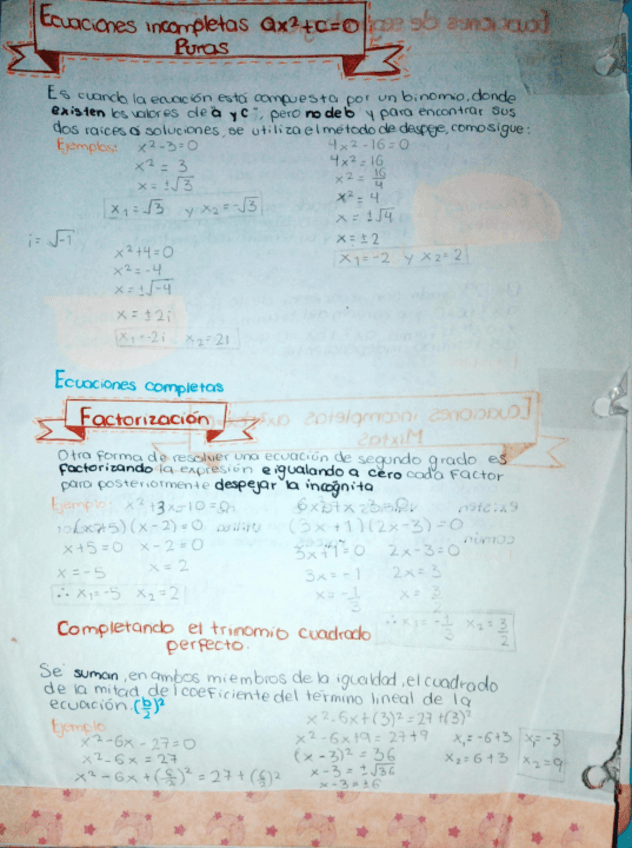 Ecuaciones incompletas ax²+c=0
Puras
Es cuando la ecuación está compuesta por un binomio, donde
existen los valores de a y c, pero no de b y para encontrar sus
dos raíces o soluciones, se utiliza el método de despeje, como sigue:
Ejemplos: x²-3=0
x² = 3
x = ±√3
x₁ = √3 y x₂ = -√3
4x²-16=0
4x² = 16
x² = 16/4
x² = 4
x = ±√4
x = ±2
x₁ = -2 y x₂ = 2
i = √-1
x²+4=0
x² = -4
x = ±√-4
x = ±2i
x₁ = -2i x₂ = 2i
Ecuaciones completas
Factorización
Otra forma de resolver una ecuación de segundo grado es
factorizando la expresión e igualando a cero cada factor
para posteriormente despejar la incógnita
Ejemplo: x²+3x-10=0
(x+5)(x-2)=0
x+5=0 x-2=0
x=-5 x=2
∴ x₁=-5 x₂=2
(3x+1)(2x-3)=0
3x+1=0 2x-3=0
3x=-1 2x=3
x=-1/3 x=3/2
∴ x₁=-1/3 x₂=3/2
Completando el trinomio cuadrado
perfecto.
Se suman, en ambos miembros de la igualdad, el cuadrado
de la mitad del coeficiente del termino lineal de la
ecuación. (b/2)²
Ejemplo
x²-6x-27=0
x²-6x = 27
x²-6x+(6/2)² = 27+(6/2)²
x²-6x+(3)²=27+(3)²
x²-6x+9=27+9
(x-3)² = 36
x-3=±√36
x-3=±6
x₁=-6+3 x₁=-3
x₂=6+3 x₂=9